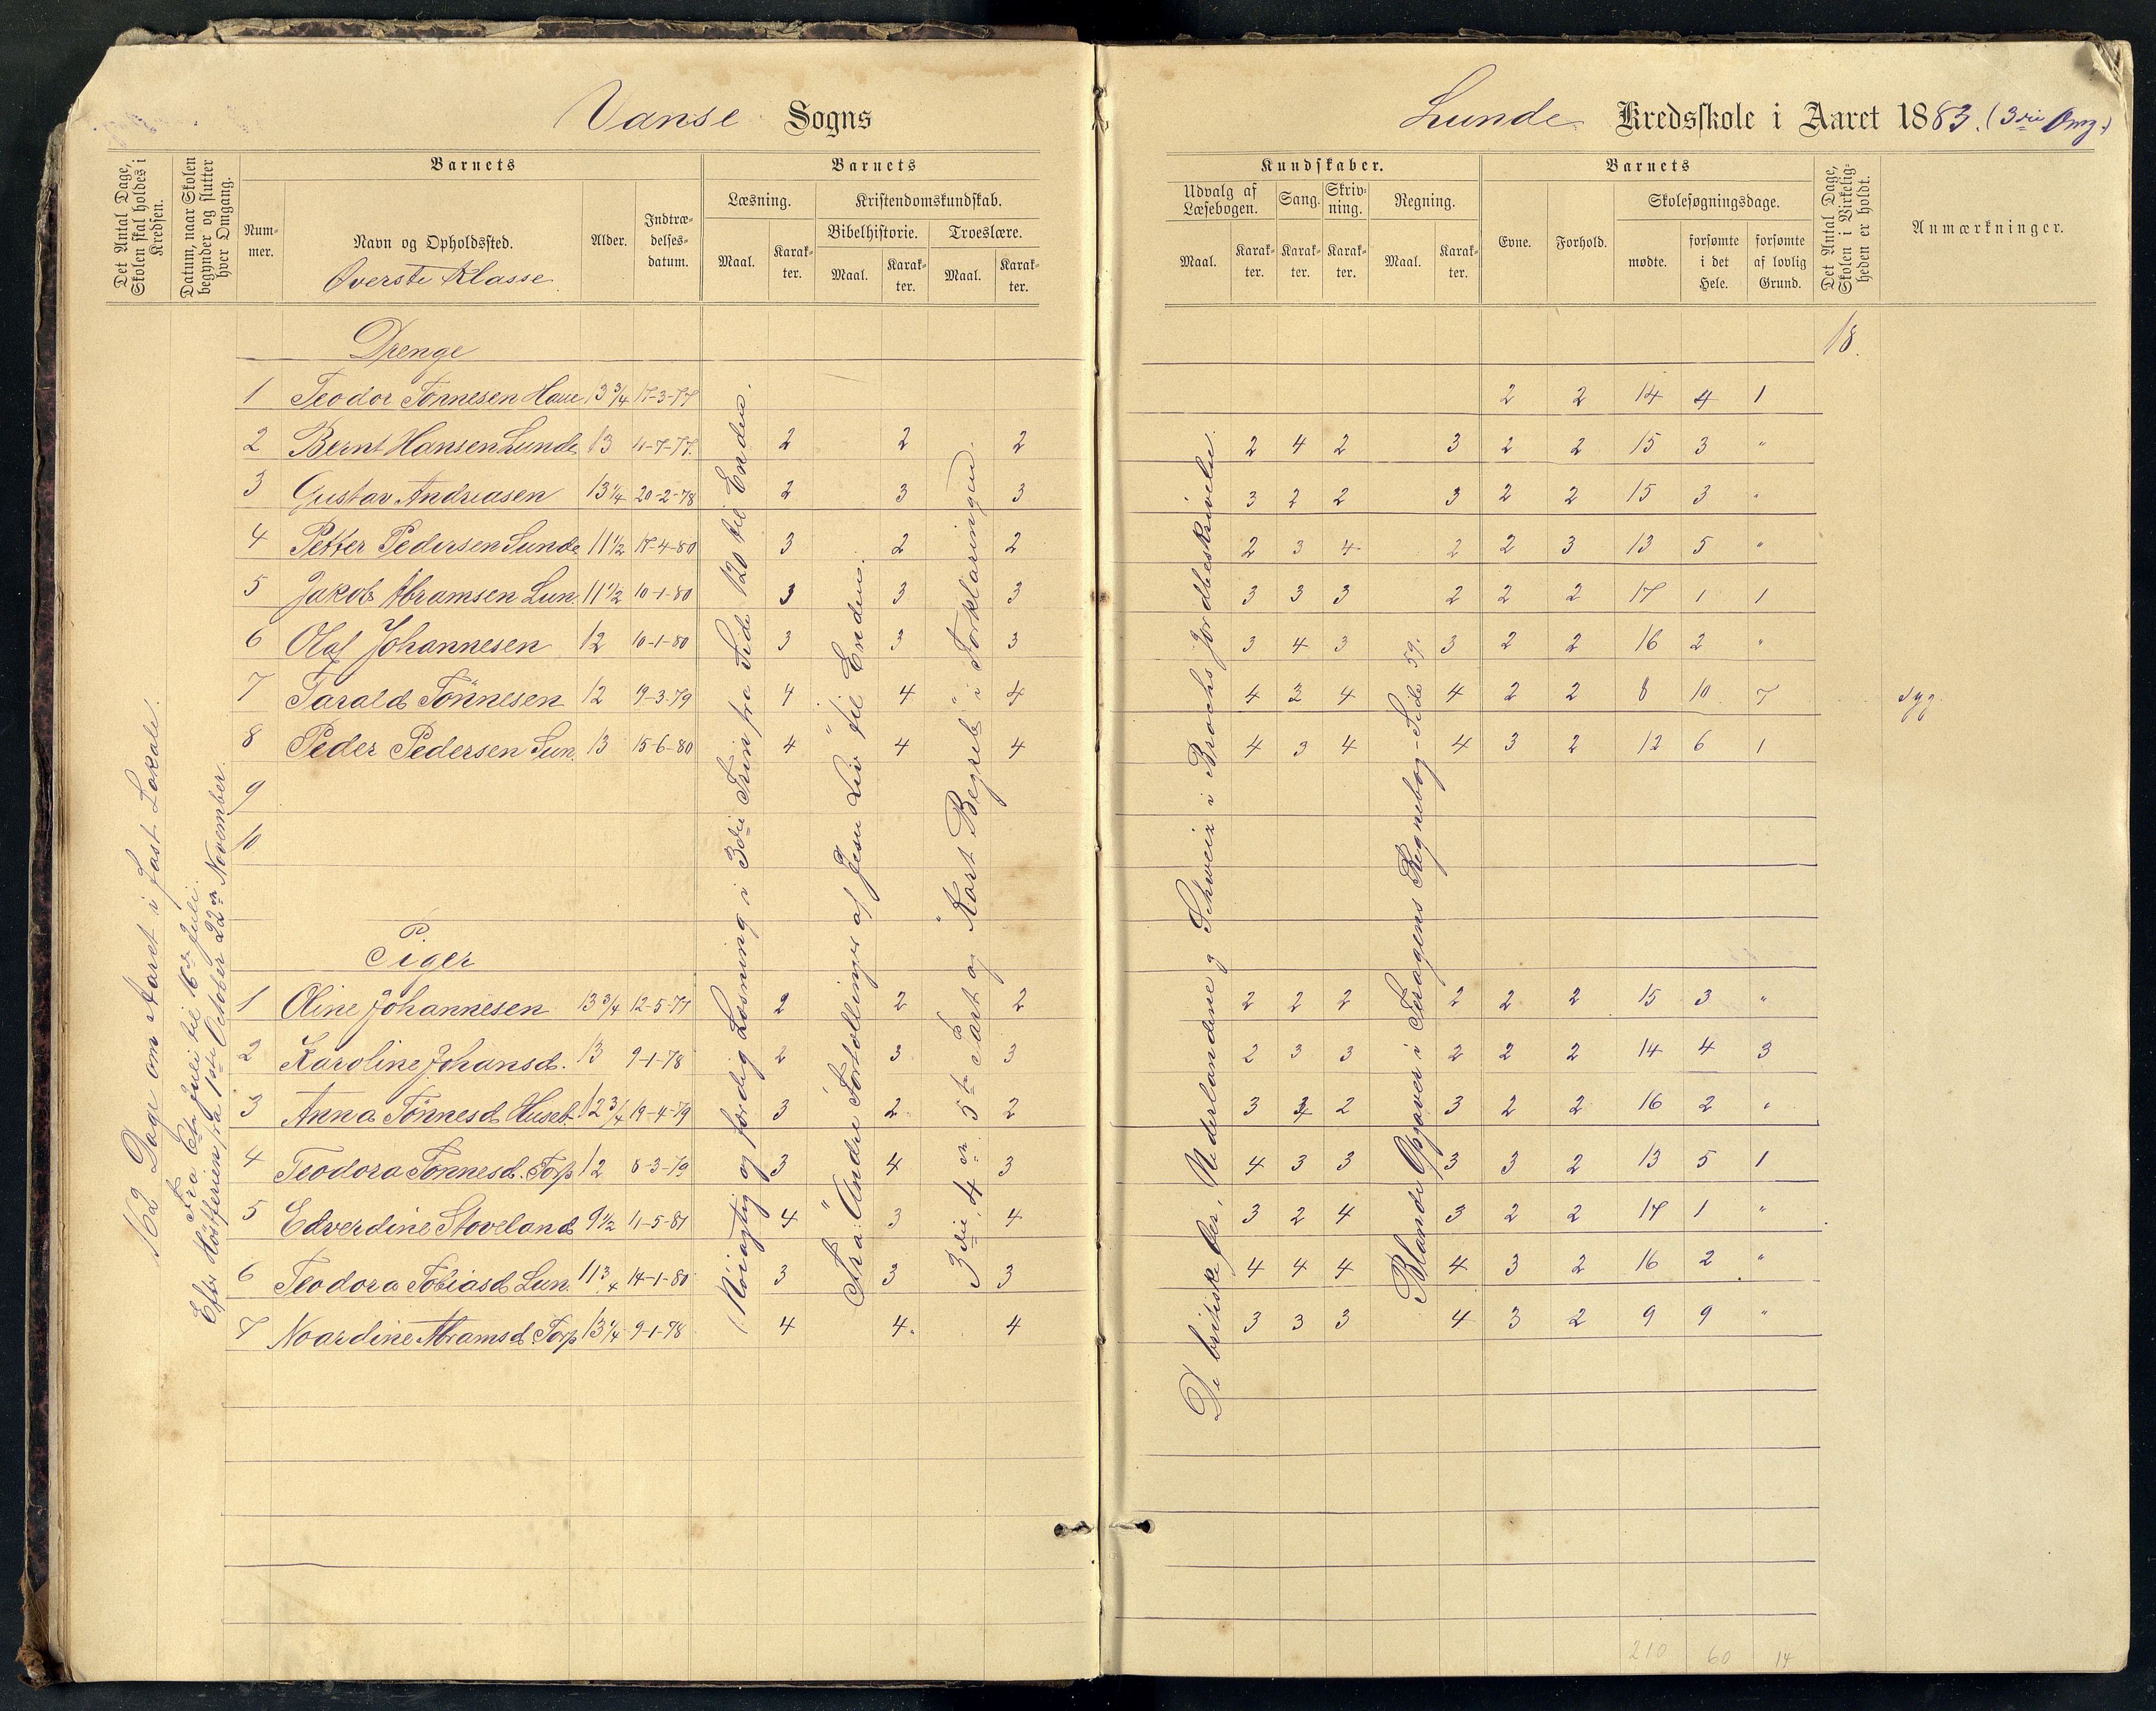 Vanse Sogns
Det Antal Dage, Skolen skal holdes i Kredsen.
Datum, naar Skolen begynder og slutter hver Omgang.
Barnets
Num-mer.
Navn og Opholdssted.
Øverste Klasse
Alder.
Indtræ-delses-datum.
Barnets
Læsning.
Maal.
Karak-ter.
Kristendomskundskab.
Bibelhistorie.
Maal.
Karak-ter.
Troeslære.
Maal.
Karak-ter.
Drenge
1 Teodor Tønnesen Haue 13 3/4 17-3-77
2 Bernt Hansen Lunde 13 11-7-77. 2 2 2
3 Gustav Andreasen 13 1/4 20-2-78 2 3 3
4 Petter Pedersen Lunde 11 1/2 17-4-80 3 2 2
5 Jakob Abramsen Lun. 11 1/2 10-1-80 3 3 3
6 Olaf Johannesen 12 10-1-80 3 3 3
7 Tarald Tönnesen 12 19-3-79 4 4 4
8 Peder Pedersen Lun. 13 15-6-80 4 4 4
9
10
Piger
1 Oline Johannesen 13 3/4 12-5-77 2 2 2
2 Karoline Johansd. 13 9-1-78 2 3 3
3 Anna Tönnesd. Huseb. 12 3/4 19-4-79 3 2 2
4 Teodora Tönnesd. Torp 12 8-3-79 3 4 3
5 Edverdine Stoveland 9 1/2 11-5-81 4 3 4
6 Teodora Tobiasd. Lun. 11 3/4 14-1-80 3 3 3
7 Noardine Abramsd. Torp 13 1/4 9-1-78 4 4. 4
162 Dage om Aaret i fast Lokale.
Fra juli til 16de Juli.
Efter Höstferien fra 1ste October 22de November.
Nöiagtig og færdig Læsning i 3die Trin fra Side 120 til Enden.
Fra: "Andre Fortællinger af Jesu Liv" til Enden.
3die, 4de en 5te Part og "Kort Begreb" i Forklaringen.
Lunde Kredsskole i Aaret 1883. (3die Omg.)
Kundskaber.
Udvalg af Læsebogen.
Maal.
Karak-ter.
Sang.
Karak-ter.
Skriv-ning.
Karak-ter.
Regning.
Maal.
Karak-ter.
Barnets
Evne.
Forhold.
Skolesøgningsdage.
mødte.
forsømte i det Hele.
forsømte af lovlig Grund.
Det Antal Dage, Skolen i Virkelig-heden er holdt.
Anmærkninger.
18.
2 2 14 4 1
2 4 2 3 2 2 15 3 "
3 2 2 3 2 2 15 3 "
2 3 4 2 2 3 13 5 "
3 3 3 2 2 2 17 1 1
3 4 3 3 2 2 16 2 "
4 3 4 4 2 2 8 10 7 syg.
4 3 4 4 3 2 12 6 1
2 2 2 2 2 2 15 3 "
2 3 3 2 2 2 14 4 3
3 3 2 3 2 2 16 2 "
4 3 3 3 3 2 13 5 1
3 2 4 3 2 2 17 1 "
4 4 4 4 3 2 16 2 "
3 3 3 4 3 2 9 9 "
De britiske Öer, Nederlandene og Schweiz i Brochs Jordbeskrivelse.
Blande Opgaver i Foragens Regnebog - Side 59.
210 60 14